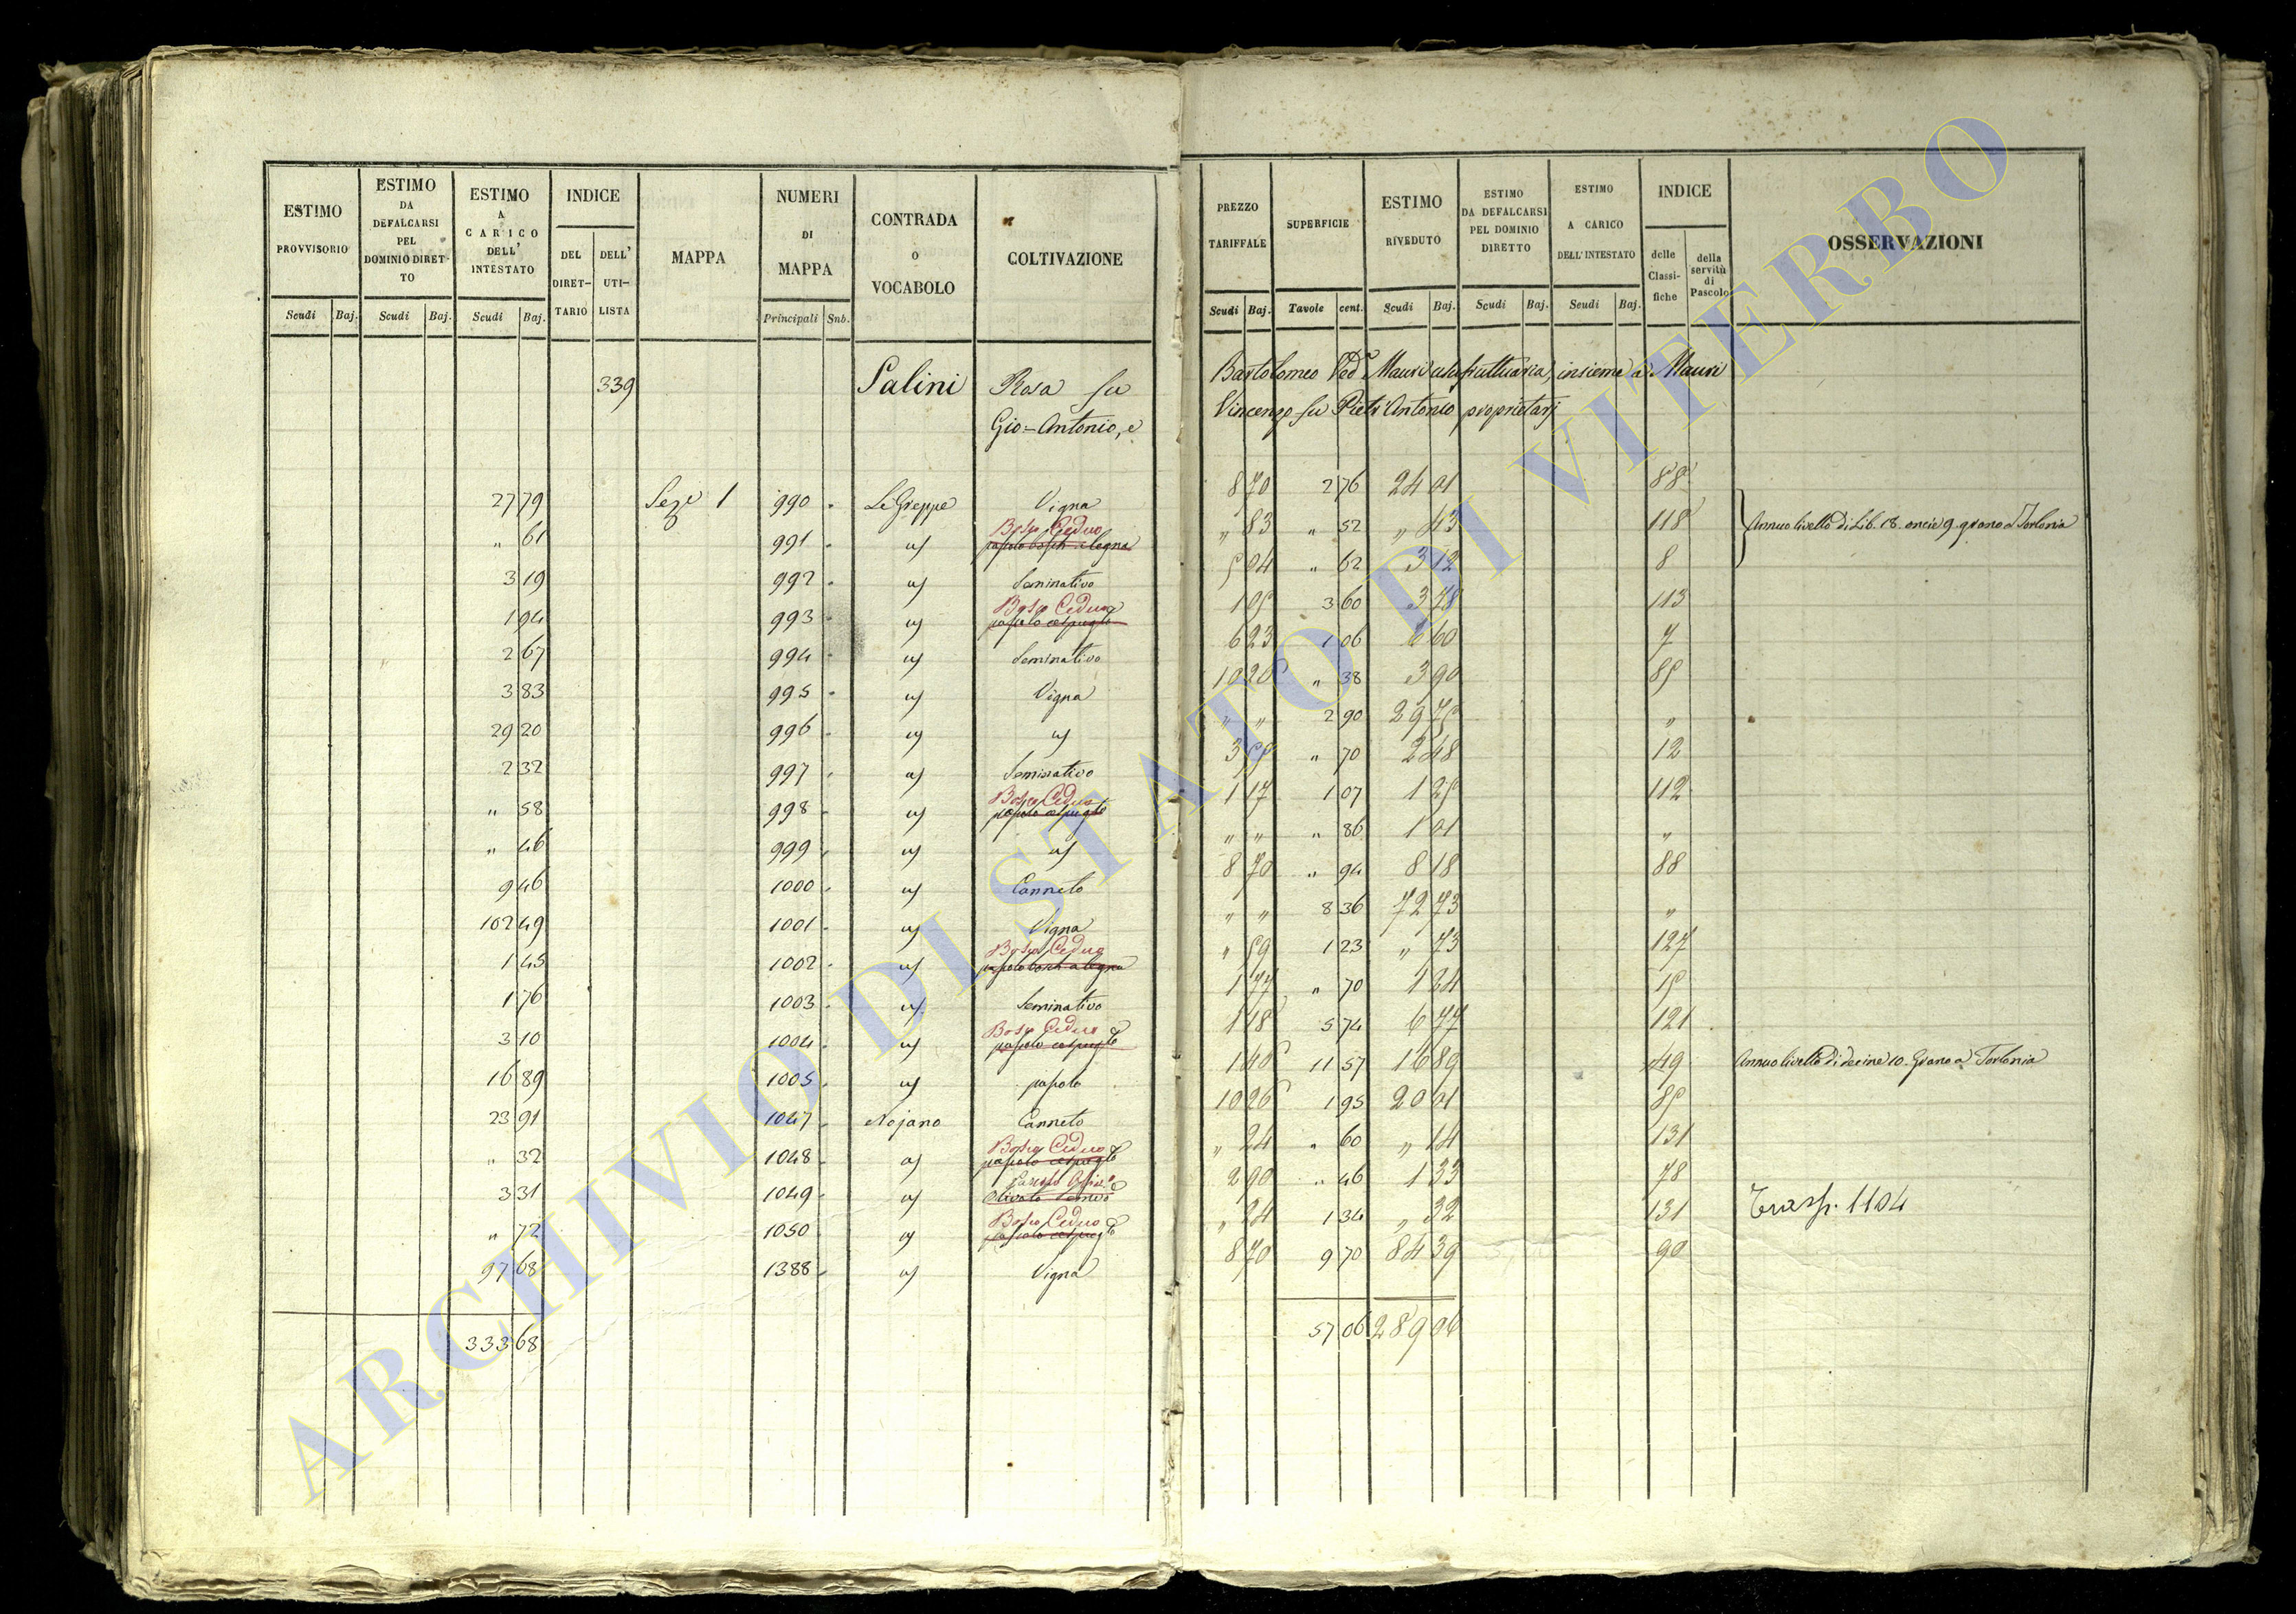 ESTIMO PROVVISORIO | ESTIMO DA DEFALCARSI PEL DOMINIO DIRETTO | ESTIMO A CARICO DELL' INTESTATO | INDICE | MAPPA | NUMERI DI MAPPA | CONTRADA O VOCABOLO | COLTIVAZIONE
DEL DIRETTARIO | DELL' UTILISTA
Scudi | Baj. | Scudi | Baj. | Scudi | Baj. | Principali | Snb.
339 Salini Rosa fu
Gio=Antonio, e
27 79 Sez.e 1 990 Le Greppe Vigna
" 61 991 Bosco Ceduo
3 19 992 Seminativo
1 94 993 Bosco Ceduo pascolo cespuglto
2 67 994 Seminativo
3 83 995 Vigna
29 20 996
2 32 997 Seminativo
" 58 998 Bosco Ceduo pascolo cespuglto
" 46 999
9 46 1000 Canneto
102 49 1001 Vigna
1 45 1002 Bosco Ceduo
1 76 1003 Seminativo
3 10 1004 Bosco Ceduo pascolo cespuglto
16 89 1005 pascolo
23 91 1047 Nojano Canneto
" 32 1048 Bosco Ceduo pascolo cespuglto
3 31 1049
" 72 1050 Bosco Ceduo pascolo cespuglto
97 68 1388 Vigna
333 68
PREZZO TARIFFALE | SUPERFICIE | ESTIMO RIVEDUTO | ESTIMO DA DEFALCARSI PEL DOMINIO DIRETTO | ESTIMO A CARICO DELL'INTESTATO | INDICE | OSSERVAZIONI
delle Classifiche | della servitù di Pascolo
Scudi | Baj. | Tavole | cent. | Scudi | Baj. | Scudi | Baj. | Scudi | Baj.
Bartolomeo Ved.a Mauri usufruttuaria, insieme a Mauri
Vincenzo fu Pietr'Antonio proprietarj
8 70 2 76 24 01 88
" 83 " 52 " 43 118 Annuo livello di Lib. 18. oncie 9. grano a Torlonia
5 04 " 62 3 12 8
1 05 3 60 3 78 113
6 23 1 06 6 60 7
10 26 " 38 3 90 85
" " 2 90 29 75 "
3 55 " 70 2 48 12
1 17 1 07 1 25 112
" " " 86 1 01 "
8 70 " 94 8 18 88
" " 8 36 72 73 "
" 59 1 23 " 73 127
1 77 " 70 1 24 15
1 18 5 74 6 77 121
1 46 11 57 16 89 49 Annuo livello di decine 10. Grano a Torlonia
10 26 1 95 20 01 85
" 24 " 60 " 14 131
2 90 " 46 1 33 78
" 24 1 34 " 32 131 Trasp. 1104
8 70 9 70 84 39 90
57 06 289 06
ARCHIVIO DI STATO DI VITERBO